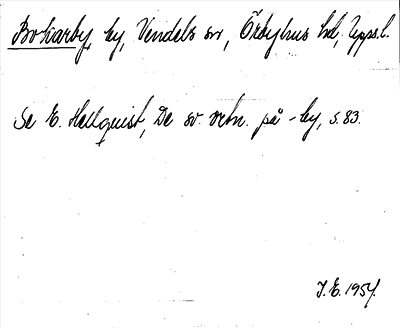 Bokarby, by, Vendels sn, Örbyhus hd, Upps.l.
Se E. Hellquist, De sv. ortn. på -by, s. 83.
J.E. 1954.